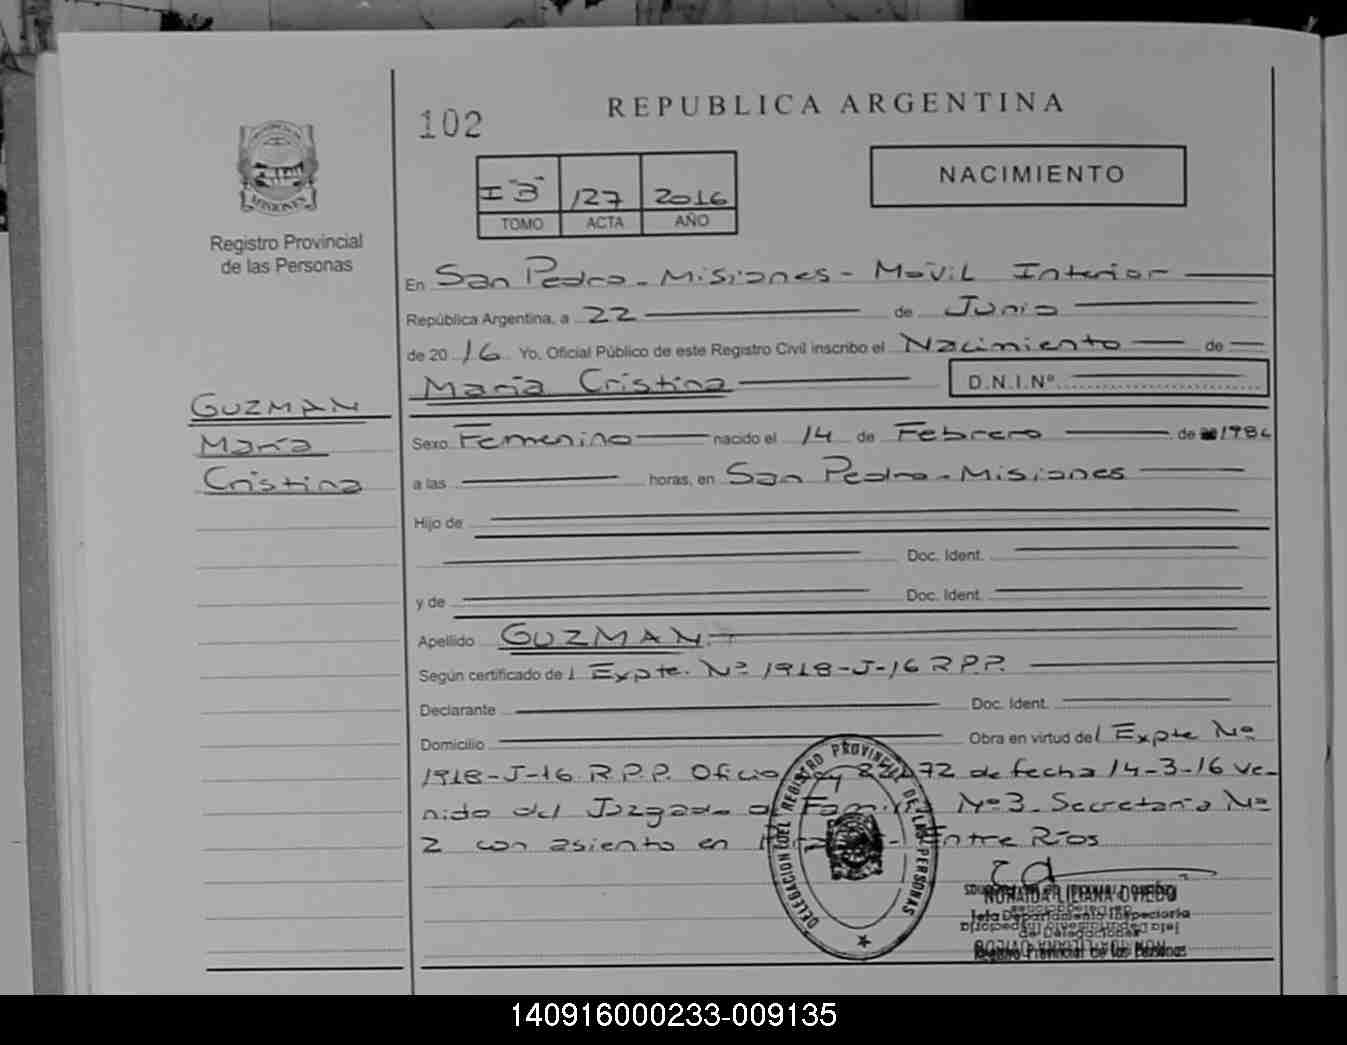 102
REPUBLICA ARGENTINA
NACIMIENTO
I "B" 127 2016
TOMO ACTA AÑO
MISIONES
Registro Provincial
de las Personas
En San Pedro - Misiones - Movil Interior
República Argentina, a 22 de Junio
de 2016 Yo, Oficial Público de este Registro Civil inscribo el Nacimiento de
María Cristina D.N.I.Nº
GUZMAN
María
Cristina
Sexo Femenino nacido el 14 de Febrero de
a las horas, en San Pedro - Misiones
Hijo de
Doc. Ident.
y de Doc. Ident.
Apellido GUZMAN
Según certificado del Expte. Nº 1918-J-16 R.P.P.
Declarante Doc. Ident.
Domicilio Obra en virtud del Expte Nº
1918-J-16 R.P.P. Oficio de fecha 14-3-16 ve-
nido del Juzgado de Familia Nº 3 - Secretaría Nº
2 con asiento en Entre Ríos
DELEGACION DEL REGISTRO PROVINCIAL DE LAS PERSONAS
LILIANA OVIEDO
Jefa Departamento Inspectoria
de Delegaciones
Registro Provincial de las Personas
140916000233-009135